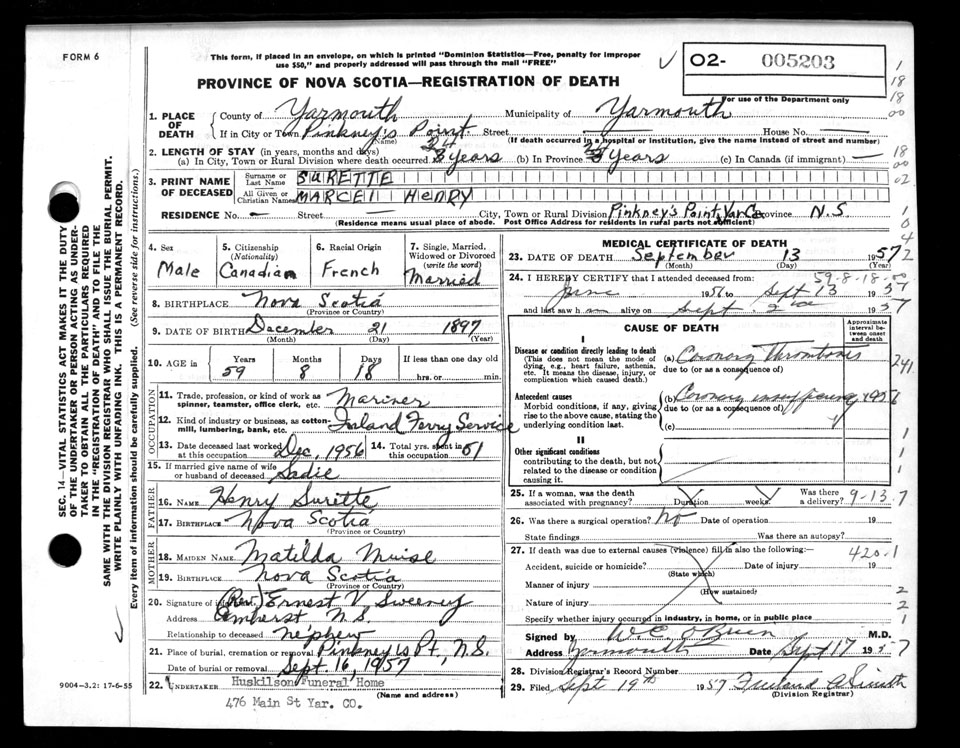 FORM 6
This form, if placed in an envelope, on which is printed "Dominion Statistics—Free, penalty for improper
use $50," and properly addressed will pass through the mail "FREE"
O2- 005203
PROVINCE OF NOVA SCOTIA—REGISTRATION OF DEATH
For use of the Department only
1. PLACE OF DEATH
County of Yarmouth Municipality of Yarmouth
If in City or Town Pinkney's Point Street House No.
(Name) (If death occurred in a hospital or institution, give the name instead of street and number)
2. LENGTH OF STAY (in years, months and days)
(a) In City, Town or Rural Division where death occurred years (b) In Province years (c) In Canada (if immigrant) —
3. PRINT NAME OF DECEASED
Surname or Last Name SURETTE
All Given or Christian Names MARCEL HENRY
RESIDENCE No. — Street — City, Town or Rural Division Pinkney's Point, Yar. Co. Province N.S
(Residence means usual place of abode. Post Office Address for residents in rural parts not sufficient)
4. Sex Male
5. Citizenship (Nationality) Canadian
6. Racial Origin French
7. Single, Married, Widowed or Divorced (write the word) Married
8. BIRTHPLACE Nova Scotia
(Province or Country)
9. DATE OF BIRTH December 21 1897
(Month) (Day) (Year)
10. AGE in Years 59 Months 8 Days 18 If less than one day old hrs. or min.
OCCUPATION
11. Trade, profession, or kind of work as spinner, teamster, office clerk, etc. Mariner
12. Kind of industry or business, as cotton mill, lumbering, bank, etc. Inland Ferry Service
13. Date deceased last worked at this occupation Dec, 1956 14. Total yrs. spent in this occupation 51
15. If married give name of wife or husband of deceased Sadie
FATHER
16. NAME Henry Surette
17. BIRTHPLACE Nova Scotia
(Province or Country)
MOTHER
18. MAIDEN NAME Matilda Muise
19. BIRTHPLACE Nova Scotia
(Province or Country)
20. Signature of (Rev.) Ernest V Sweeney
Address Amherst N.S.
Relationship to deceased nephew
21. Place of burial, cremation or removal Pinkney's Pt, N.S.
Date of burial or removal Sept. 16, 1957
22. UNDERTAKER Huskilson Funeral Home
(Name and address)
476 Main St Yar. CO.
MEDICAL CERTIFICATE OF DEATH
23. DATE OF DEATH September 13 1957
(Month) (Day) (Year)
59-8-18-00
24. I HEREBY CERTIFY that I attended deceased from:
June 1956 to Sept 13 1957
and last saw h im alive on Sept. 1957
CAUSE OF DEATH
Approximate interval between onset and death
I
Disease or condition directly leading to death
(This does not mean the mode of dying, e.g., heart failure, asthenia, etc. It means the disease, injury, or complication which caused death.)
(a) Coronary Thrombosis
due to (or as a consequence of)
241
Antecedent causes
Morbid conditions, if any, giving rise to the above cause, stating the underlying condition last.
(b) Coronary insufficiency 1956
due to (or as a consequence of)
(c)
II
Other significant conditions
contributing to the death, but not related to the disease or condition causing it.
25. If a woman, was the death associated with pregnancy? Duration weeks Was there a delivery? 9-13-7
26. Was there a surgical operation? No Date of operation 19
State findings Was there an autopsy?
27. If death was due to external causes (violence) fill in also the following: 420-1
Accident, suicide or homicide? Date of injury 19
(State which)
Manner of injury
(How sustained)
Nature of injury
Specify whether injury occurred in industry, in home, or in public place
Signed by W.C. O'Brien M.D.
Address Yarmouth Date Sept 17 1957
28. Division Registrar's Record Number
29. Filed Sept 19th 1957
(Division Registrar)
SEC. 14—VITAL STATISTICS ACT MAKES IT THE DUTY
OF THE UNDERTAKER OR PERSON ACTING AS UNDER-
TAKER TO OBTAIN ALL THE PARTICULARS REQUIRED
IN THE "REGISTRATION OF DEATH" AND TO FILE THE
SAME WITH THE DIVISION REGISTRAR WHO SHALL ISSUE THE BURIAL PERMIT.
WRITE PLAINLY WITH UNFADING INK. THIS IS A PERMANENT RECORD.
Every item of information should be carefully supplied. (See reverse side for instructions.)
9004-3.2: 17-6-55